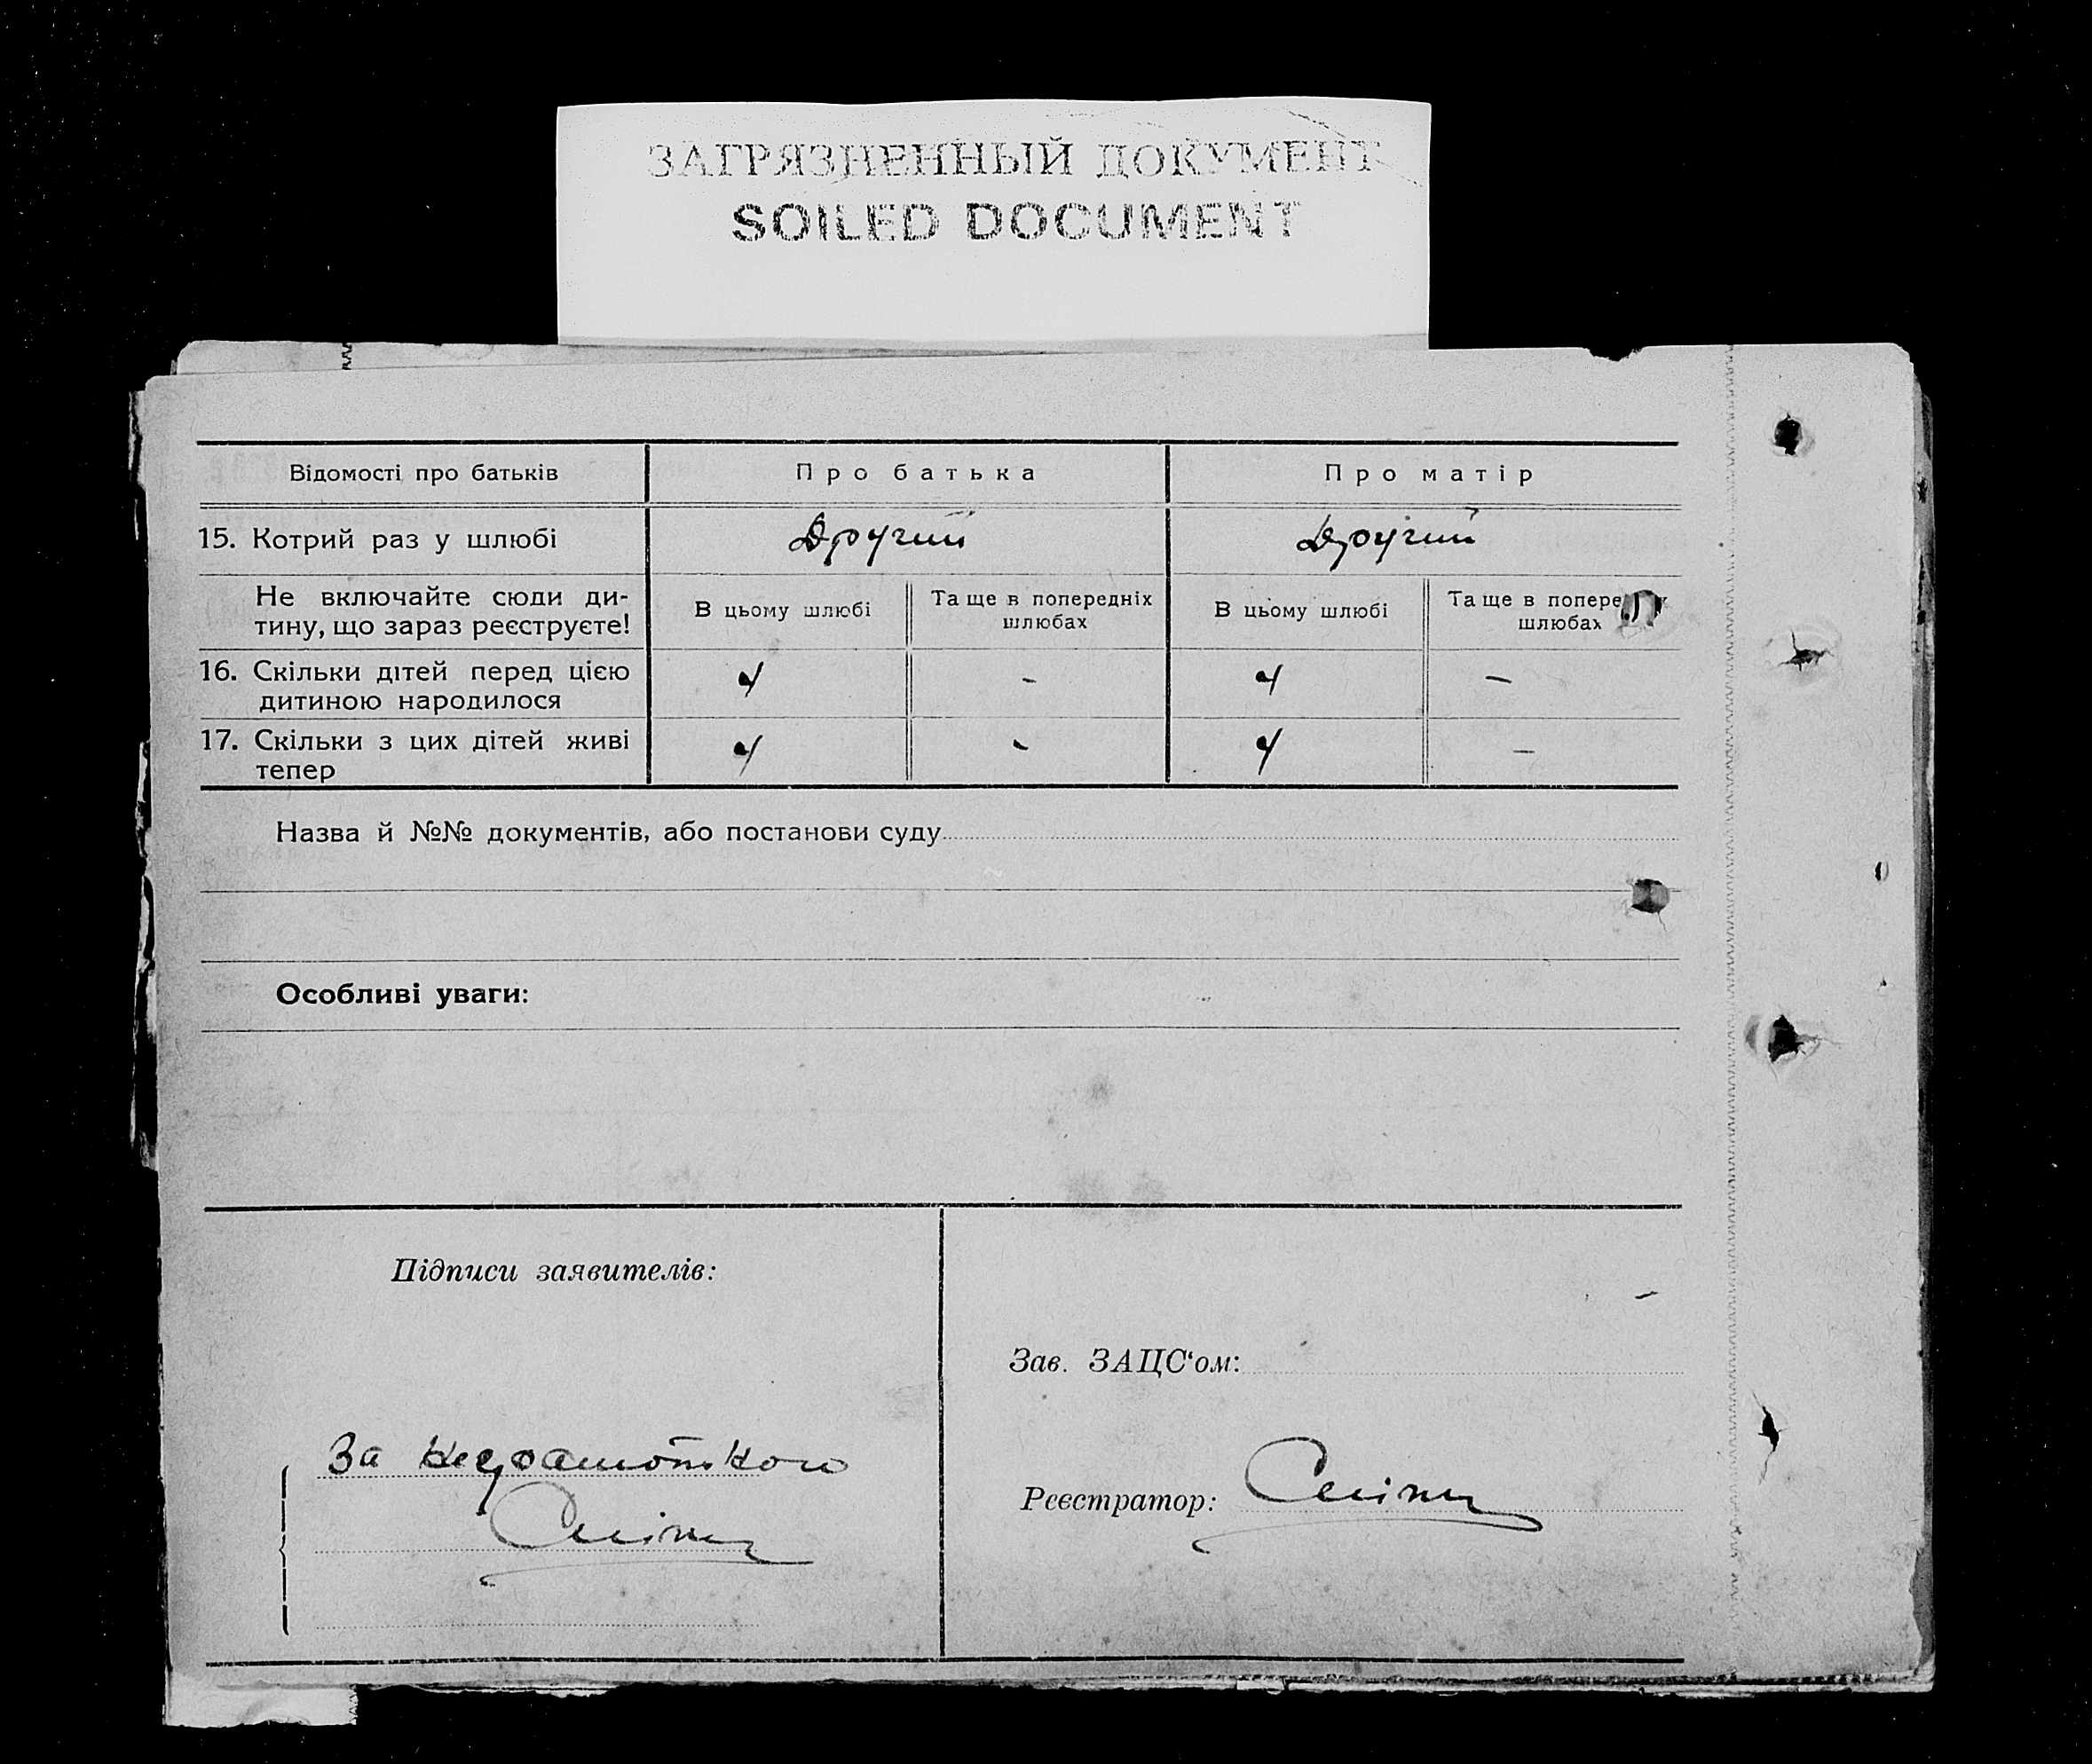 ЗАГРЯЗНЕННЫЙ ДОКУМЕНТ
SOILED DOCUMENT
Відомості про батьків Про батька Про матір
15. Котрий раз у шлюбі Другий Другий
Не включайте сюди ди-
тину, що зараз реєструєте!
В цьому шлюбі
Та ще в попередніх
шлюбах
В цьому шлюбі
Та ще в
шлюбах
16. Скільки дітей перед цією
дитиною народилося
4 - 4 -
17. Скільки з цих дітей живі
тепер
4 - 4 -
Назва й №№ документів, або постанови суду
Особливі уваги:
Підписи заявителів:
За неграмотного
Зав. ЗАЦС‘ом:
Реєстратор: